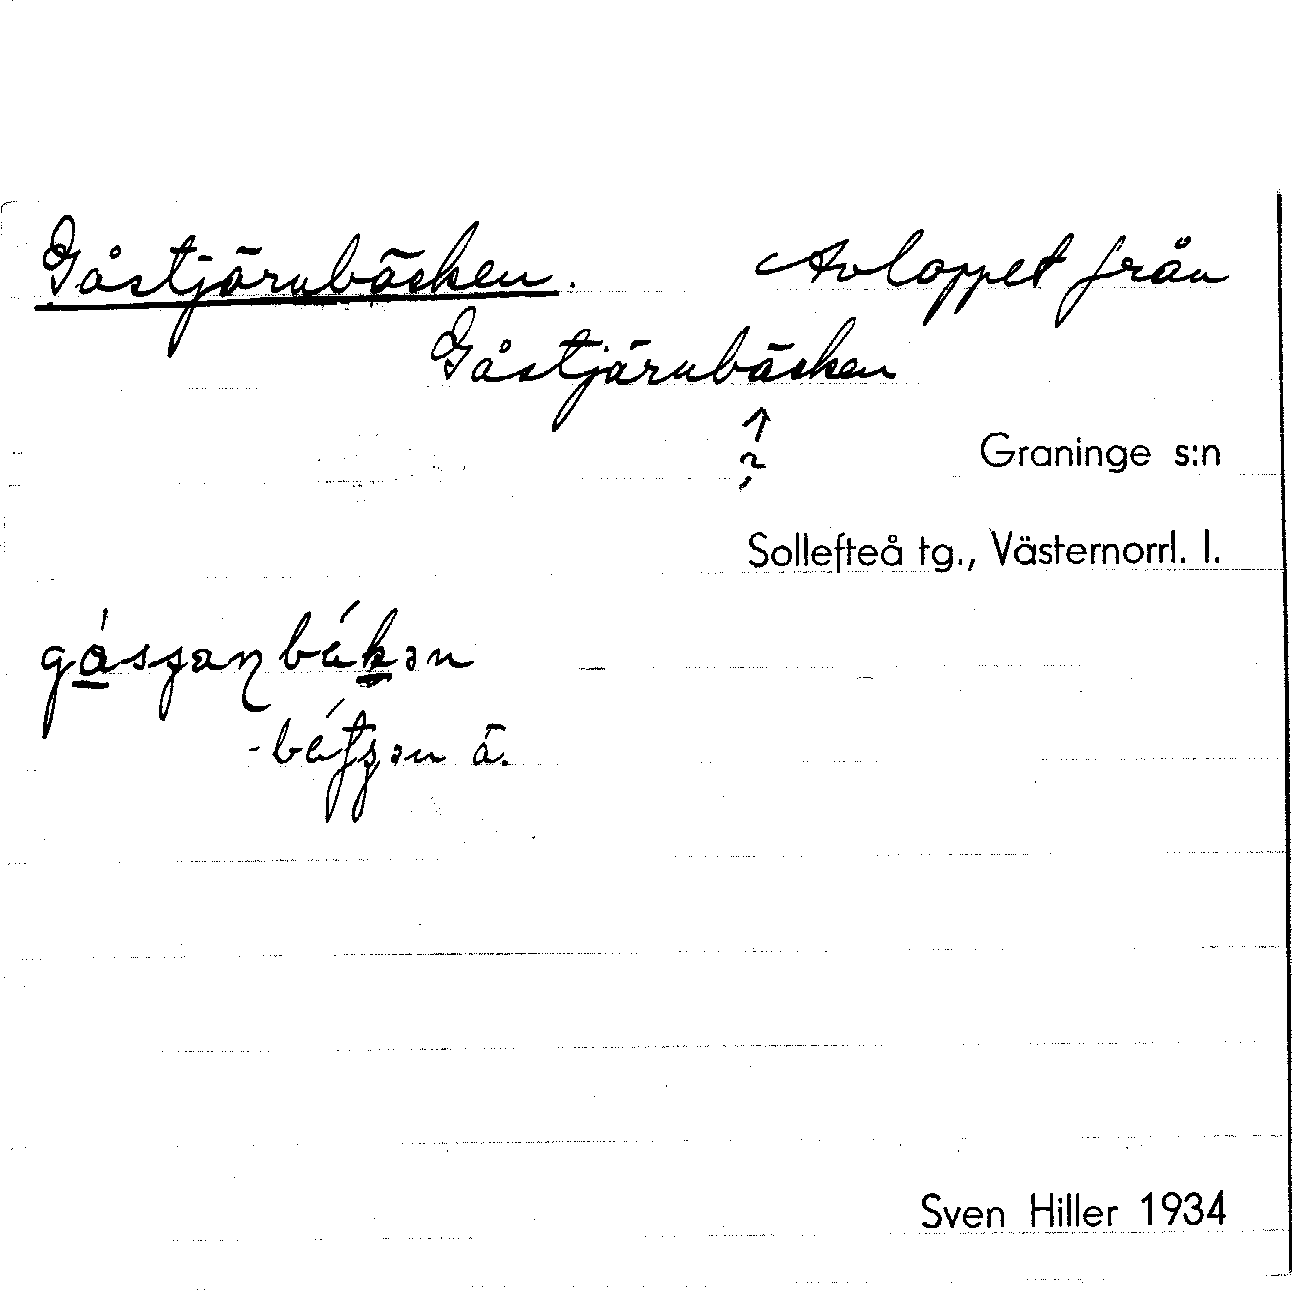 Gåstjärnbäcken. Avloppet från
Gåstjärnbäcken
↑
?
Graninge s:n
Sollefteå tg., Västernorrl. l.
Sven Hiller 1934